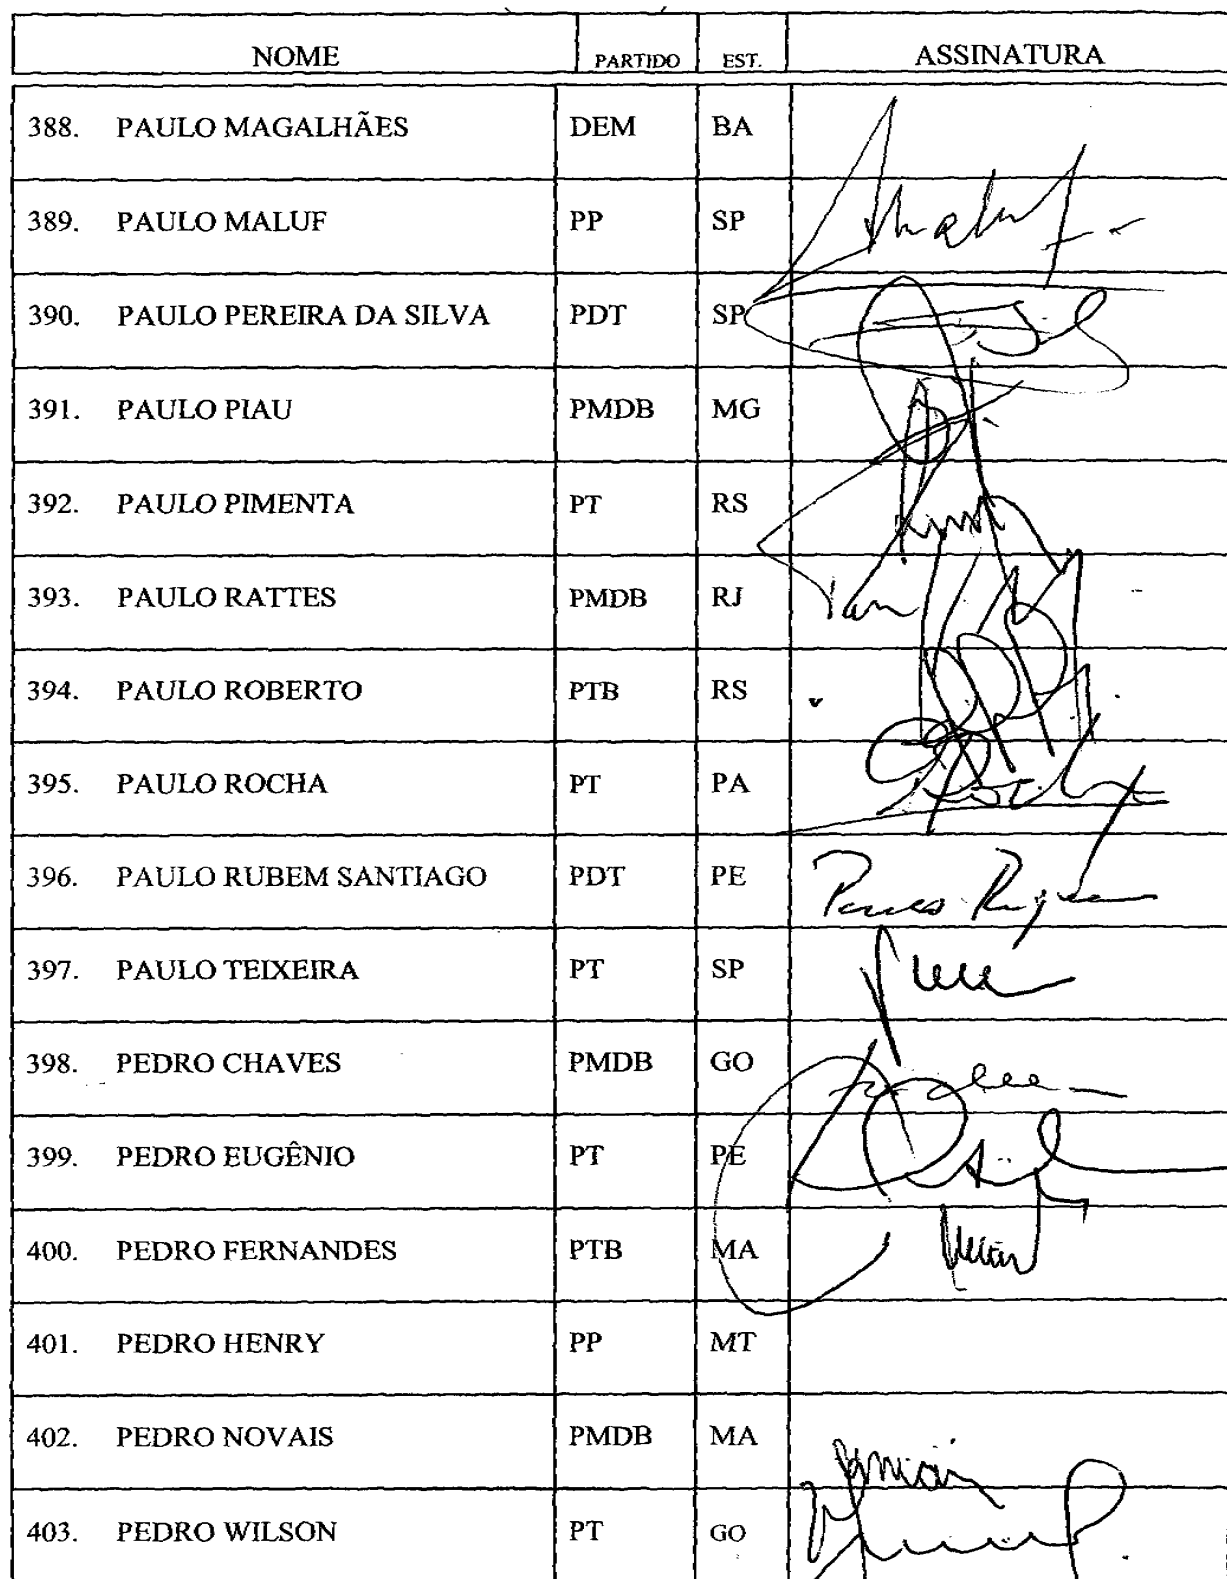 NOME PARTIDO EST. ASSINATURA
388. PAULO MAGALHÃES DEM BA
389. PAULO MALUF PP SP
390. PAULO PEREIRA DA SILVA PDT SP
391. PAULO PIAU PMDB MG
392. PAULO PIMENTA PT RS
393. PAULO RATTES PMDB RJ
394. PAULO ROBERTO PTB RS
395. PAULO ROCHA PT PA
396. PAULO RUBEM SANTIAGO PDT PE
397. PAULO TEIXEIRA PT SP
398. PEDRO CHAVES PMDB GO
399. PEDRO EUGÊNIO PT PE
400. PEDRO FERNANDES PTB MA
401. PEDRO HENRY PP MT
402. PEDRO NOVAIS PMDB MA
403. PEDRO WILSON PT GO